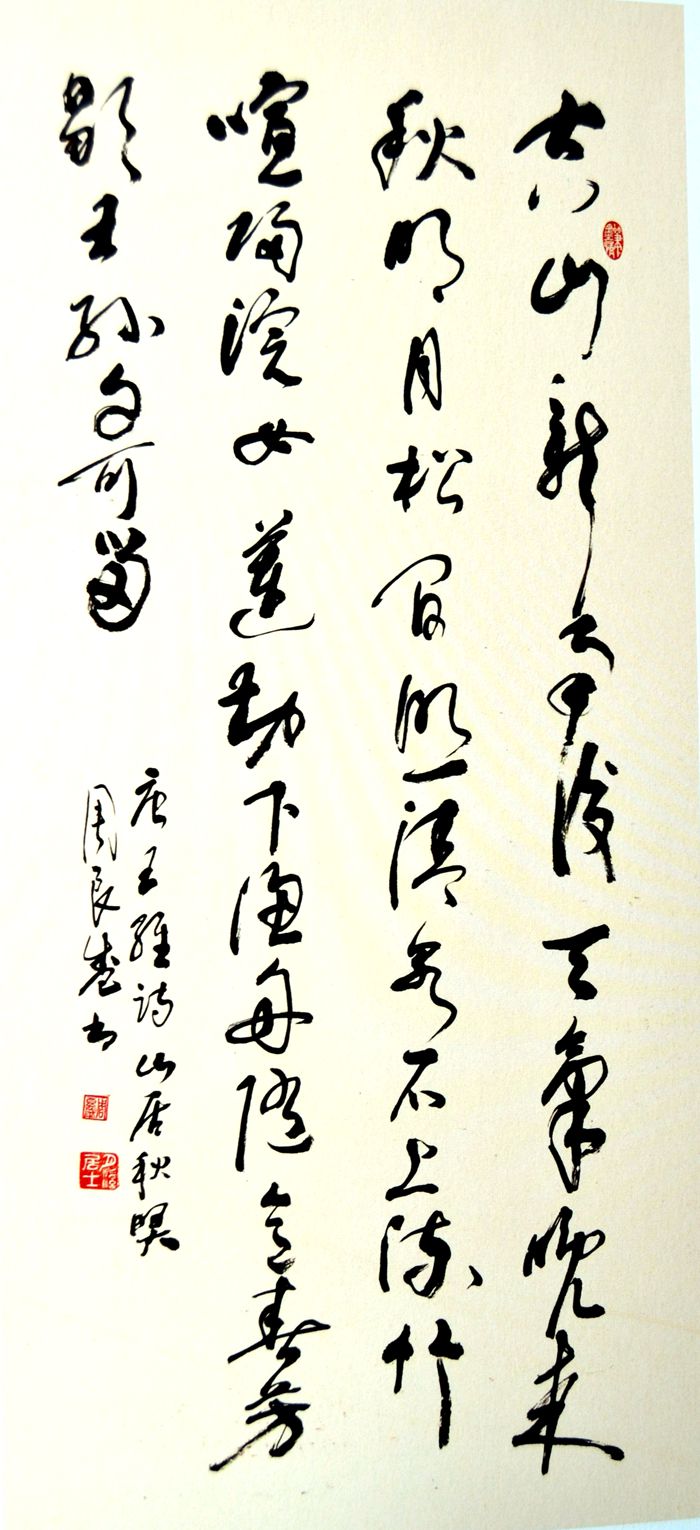 空山新雨後天氣晚来
秋明月松间照清泉石上流竹
喧歸浣女蓮動下漁舟隨意春芳
歇王孫自可留
唐王維詩山居秋暝
周良書
居士